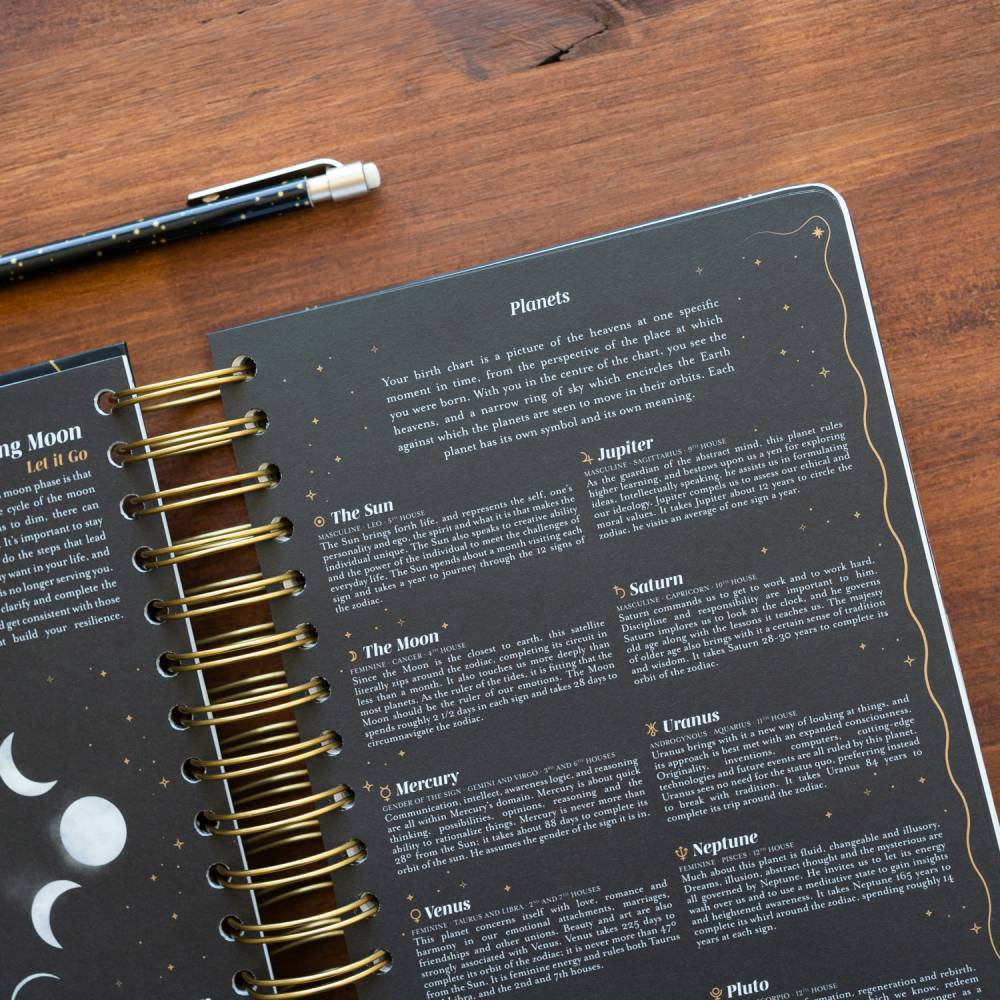 ng Moon
Let it Go
moon phase is that
cycle of the moon
s to dim, there can
It's important to stay
do the steps that lead
want in your life, and
s no longer serving you.
clarify and complete the
get consistent with those
build your resilience.
Planets
Your birth chart is a picture of the heavens at one specific
moment in time, from the perspective of the place at which
you were born. With you in the centre of the chart, you see the
heavens, and a narrow ring of sky which encircles the Earth
against which the planets are seen to move in their orbits. Each
planet has its own symbol and its own meaning.
The Sun
MASCULINE · LEO · 5TH HOUSE
The Sun brings forth life, and represents the self, one's
personality and ego, the spirit and what it is that makes the
individual unique. The Sun also speaks to creative ability
and the power of the individual to meet the challenges of
everyday life. The Sun spends about a month visiting each
sign and takes a year to journey through the 12 signs of
the zodiac.
The Moon
FEMININE · CANCER · 4TH HOUSE
Since the Moon is the closest to earth, this satellite
literally zips around the zodiac, completing its circuit in
less than a month. It also touches us more deeply than
most planets. As the ruler of the tides, it is fitting that the
Moon should be the ruler of our emotions. The Moon
spends roughly 2 1/2 days in each sign and takes 28 days to
circumnavigate the zodiac.
Mercury
GENDER OF THE SIGN · GEMINI AND VIRGO · 3RD AND 6TH HOUSES
Communication, intellect, awareness, logic, and reasoning
are all within Mercury's domain. Mercury is about quick
thinking, possibilities, opinions, reasoning and the
ability to rationalize things. Mercury is never more than
28º from the Sun; it takes about 88 days to complete its
orbit of the sun. He assumes the gender of the sign it is in.
Venus
FEMININE · TAURUS AND LIBRA · 2ND AND 7TH HOUSES
This planet concerns itself with love, romance and
harmony in our emotional attachments, marriages,
friendships and other unions. Beauty and art are also
strongly associated with Venus. Venus takes 225 days to
complete its orbit of the zodiac; it is never more than 47º
from the Sun. It is feminine energy and rules both Taurus
Libra, and the 2nd and 7th houses.
Jupiter
MASCULINE · SAGITTARIUS · 9TH HOUSE
As the guardian of the abstract mind, this planet rules
higher learning, and bestows upon us a yen for exploring
ideas. Intellectually speaking, he assists us in formulating
our ideology. Jupiter compels us to assess our ethical and
moral values. It takes Jupiter about 12 years to circle the
zodiac, he visits an average of one sign a year.
Saturn
MASCULINE · CAPRICORN · 10TH HOUSE
Saturn commands us to get to work and to work hard.
Discipline and responsibility are important to him.
Saturn implores us to look at the clock, and he governs
old age along with the lessons it teaches us. The majesty
of older age also brings with it a certain sense of tradition
and wisdom. It takes Saturn 28-30 years to complete its
orbit of the zodiac.
Uranus
ANDROGYNOUS · AQUARIUS · 11TH HOUSE
Uranus brings with it a new way of looking at things, and
its approach is best met with an expanded consciousness.
Originality, inventions, computers, cutting-edge
technologies and future events are all ruled by this planet.
Uranus sees no need for the status quo, preferring instead
to break with tradition. It takes Uranus 84 years to
complete its trip around the zodiac.
Neptune
FEMININE · PISCES · 12TH HOUSE
Much about this planet is fluid, changeable and illusory.
Dreams, illusion, abstract thought and the mysterious are
all governed by Neptune. He invites us to let its energy
wash over us and to use a meditative state to gain insights
and heightened awareness. It takes Neptune 165 years to
complete its whirl around the zodiac, spending roughly 14
years at each sign.
Pluto
SCORPIO · 12TH HOUSE
regeneration and rebirth.
which we know, redeem